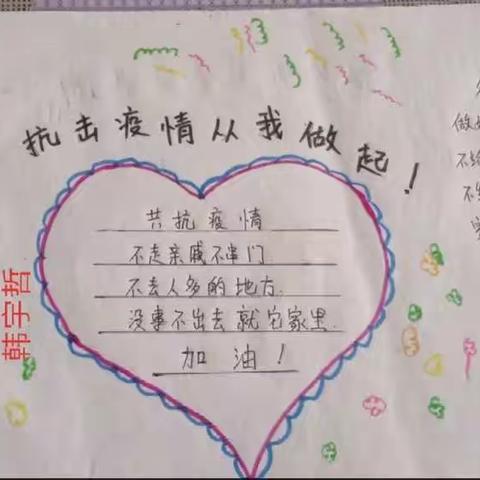 抗击疫情从我做起！
共抗疫情
不走亲戚不串门
不去人多的地方.
没事不出去就宅家里.
加油！
韩宇哲
做
不
不